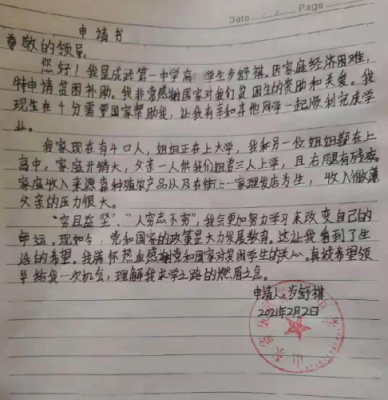 Date
Page
申请书
尊敬的领导:
您好！我是成武第一中学高一学生岁舒祺。因家庭经济困难,
特申请贫困补助。我非常感谢国家对我们贫困生的资助和关爱。我
现在十分需要国家帮助我,让我有幸和其他同学一起顺利完成学
业。
我家现在有千口人,姐姐正在上大学,我和另一位姐姐都在上
高中,家庭开销大,父亲一人供我们姐弟三人上学,且右腿有残疾
家庭收入来源靠种植农产品以及在街上一家理发店为生,收入微薄
父亲的压力很大。
“穷且益坚”、“人穷志不穷”,我会更加努力学习来改变自己的
命运。现如今,党和国家的政策是大力发展教育。这让我看到了生
活的希望。我满怀热血感谢党和国家对贫困学生的关心。真挚希望领
导给我一次机会,理解我求学之路的燃眉之急。
申请人:岁舒祺
2021年2月2日